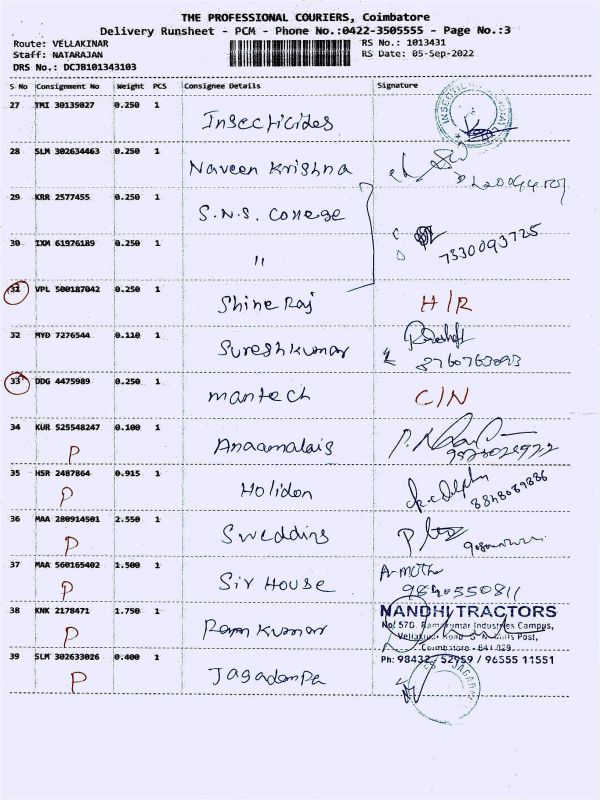 THE PROFESSIONAL COURIERS, Coimbatore
Delivery Runsheet - PCM - Phone No.:0422-3505555 - Page No.:3
Route: VELLAKINAR RS No.: 1013431
Staff: NATARAJAN RS Date: 05-Sep-2022
DRS No.: DCJB101343103
S No Consignment No Weight PCS Consignee Details Signature
27 TMI 30135027 0.250 1 Insecticides
28 SLM 302634463 0.250 1 Naveen Krishna
29 KRR 2577455 0.250 1 S.N.S. College
30 IXM 61976189 0.250 1 " 7530093725
VPL 500187042 0.250 1 Shine Raj H/R
32 MYD 7276544 0.110 1 Sureshkumar 8760763093
33 DDG 4475989 0.250 1 mantech C/N
34 KUR 525548247 0.100 1 Anaamalais
P
35 HSR 2487864 0.915 1 Holidon
P
36 MAA 280914501 2.550 1 Sweddins
P
37 MAA 560165402 1.500 1 Sir House
P
38 KNK 2178471 1.750 1 Ramkumar NANDHI TRACTORS
P No! 57D, Ramkumar Industries Campus,
Coimbatore - 641 029.
Ph: 98432 52959 / 96555 11551
39 SLM 302633026 0.400 1 Jagadampa
P